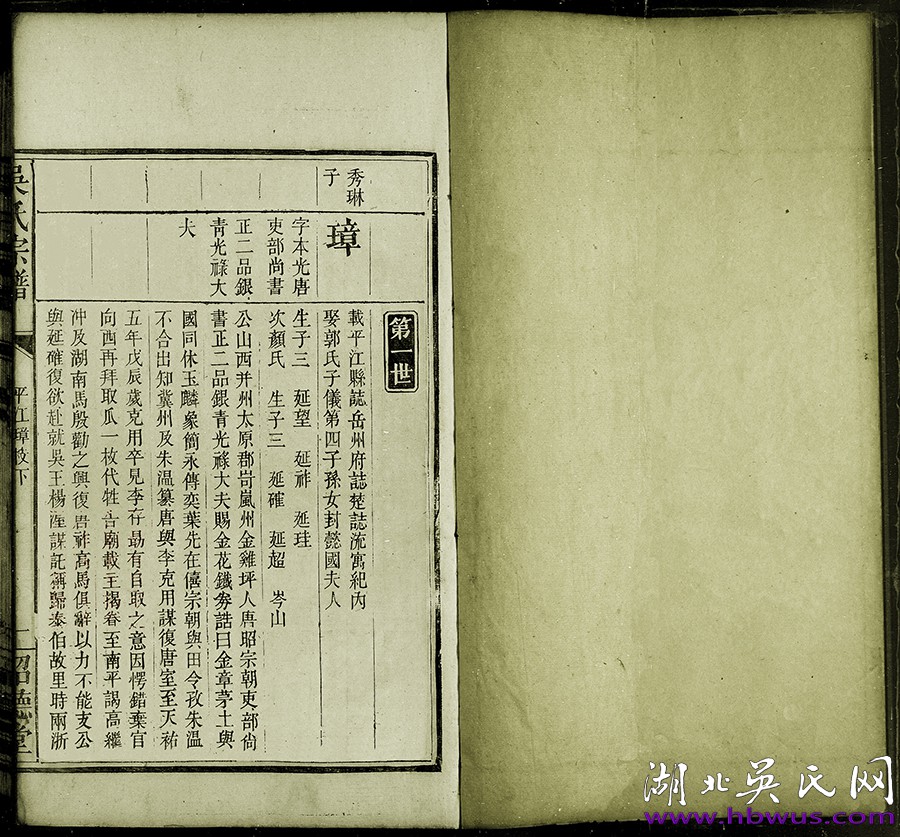 第一世
秀琳
子
璋
字本光唐
吏部尚書
正二品銀
青光祿大
夫
載平江縣誌岳州府誌楚誌流寓紀內
娶郭氏子儀第四子孫女封懿國夫人
生子三 延望 延祚 延珪
次顏氏 生子三 延確 延超 岑山
公山西并州太原郡岢嵐州金雞坪人唐昭宗朝吏部尚
書正二品銀青光祿大夫賜金花鐵券誥曰金章茅土與
國同休玉麟象簡永傳奕葉先在僖宗朝與田令孜朱溫
不合出知冀州及朱溫篡唐與李克用謀復唐室至天祐
五年戊辰歲克用卒見李存勗有自取之意因愕錯棄官
向西再拜取瓜一枚代牲告廟載主揭眷至南平謁高繼
冲及湖南馬殷勸之興復唐祚高馬俱辭以力不能支公
與延確復欲赴就吳王楊溼謀託稱歸泰伯故里時兩浙
吳氏宗譜
平江璋
下
昭德堂
湖北吳氏网
www.hbwus.com